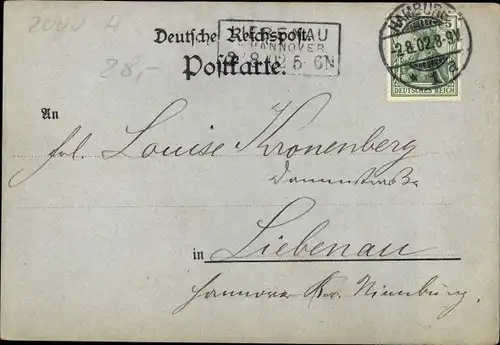 2000 H
28,-
Deutsche Reichspost.
Postkarte.
LIEBENAU
HANNOVER
2 8 02 5-6N
HAMBURG
-2.8.02.8-9V.
DEUTSCHES REICH
An
Frl. Louise Kronenberg
Dammstraße
in Liebenau
Hannover Kr. Nienburg.